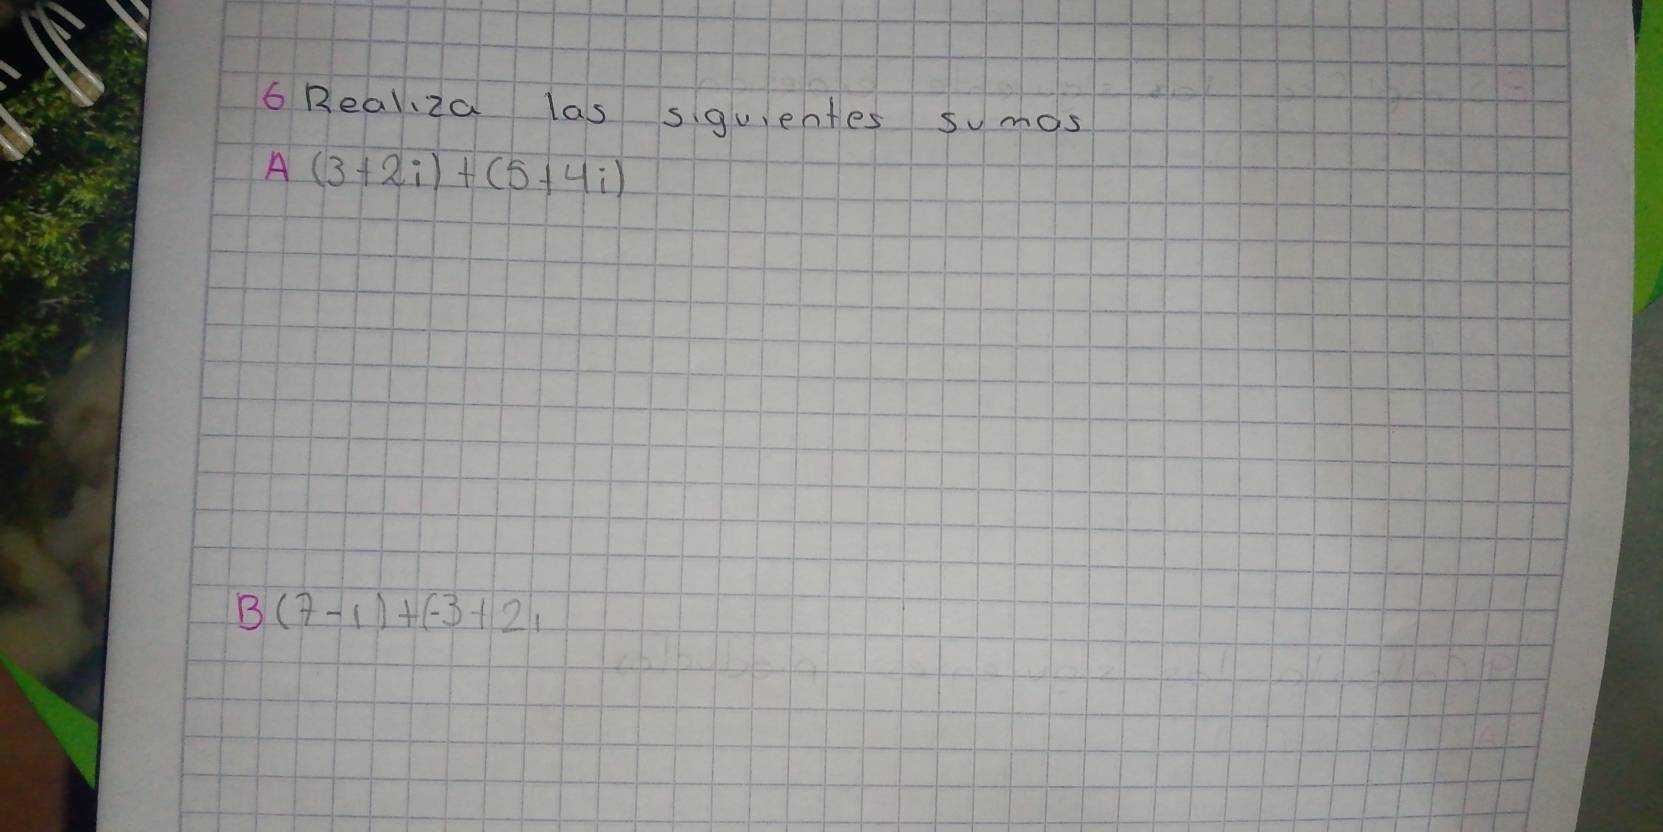 6 Realiza las siguientes sumas
A (3+2i)+(5+4i)
B (7-i)+(-3+2i